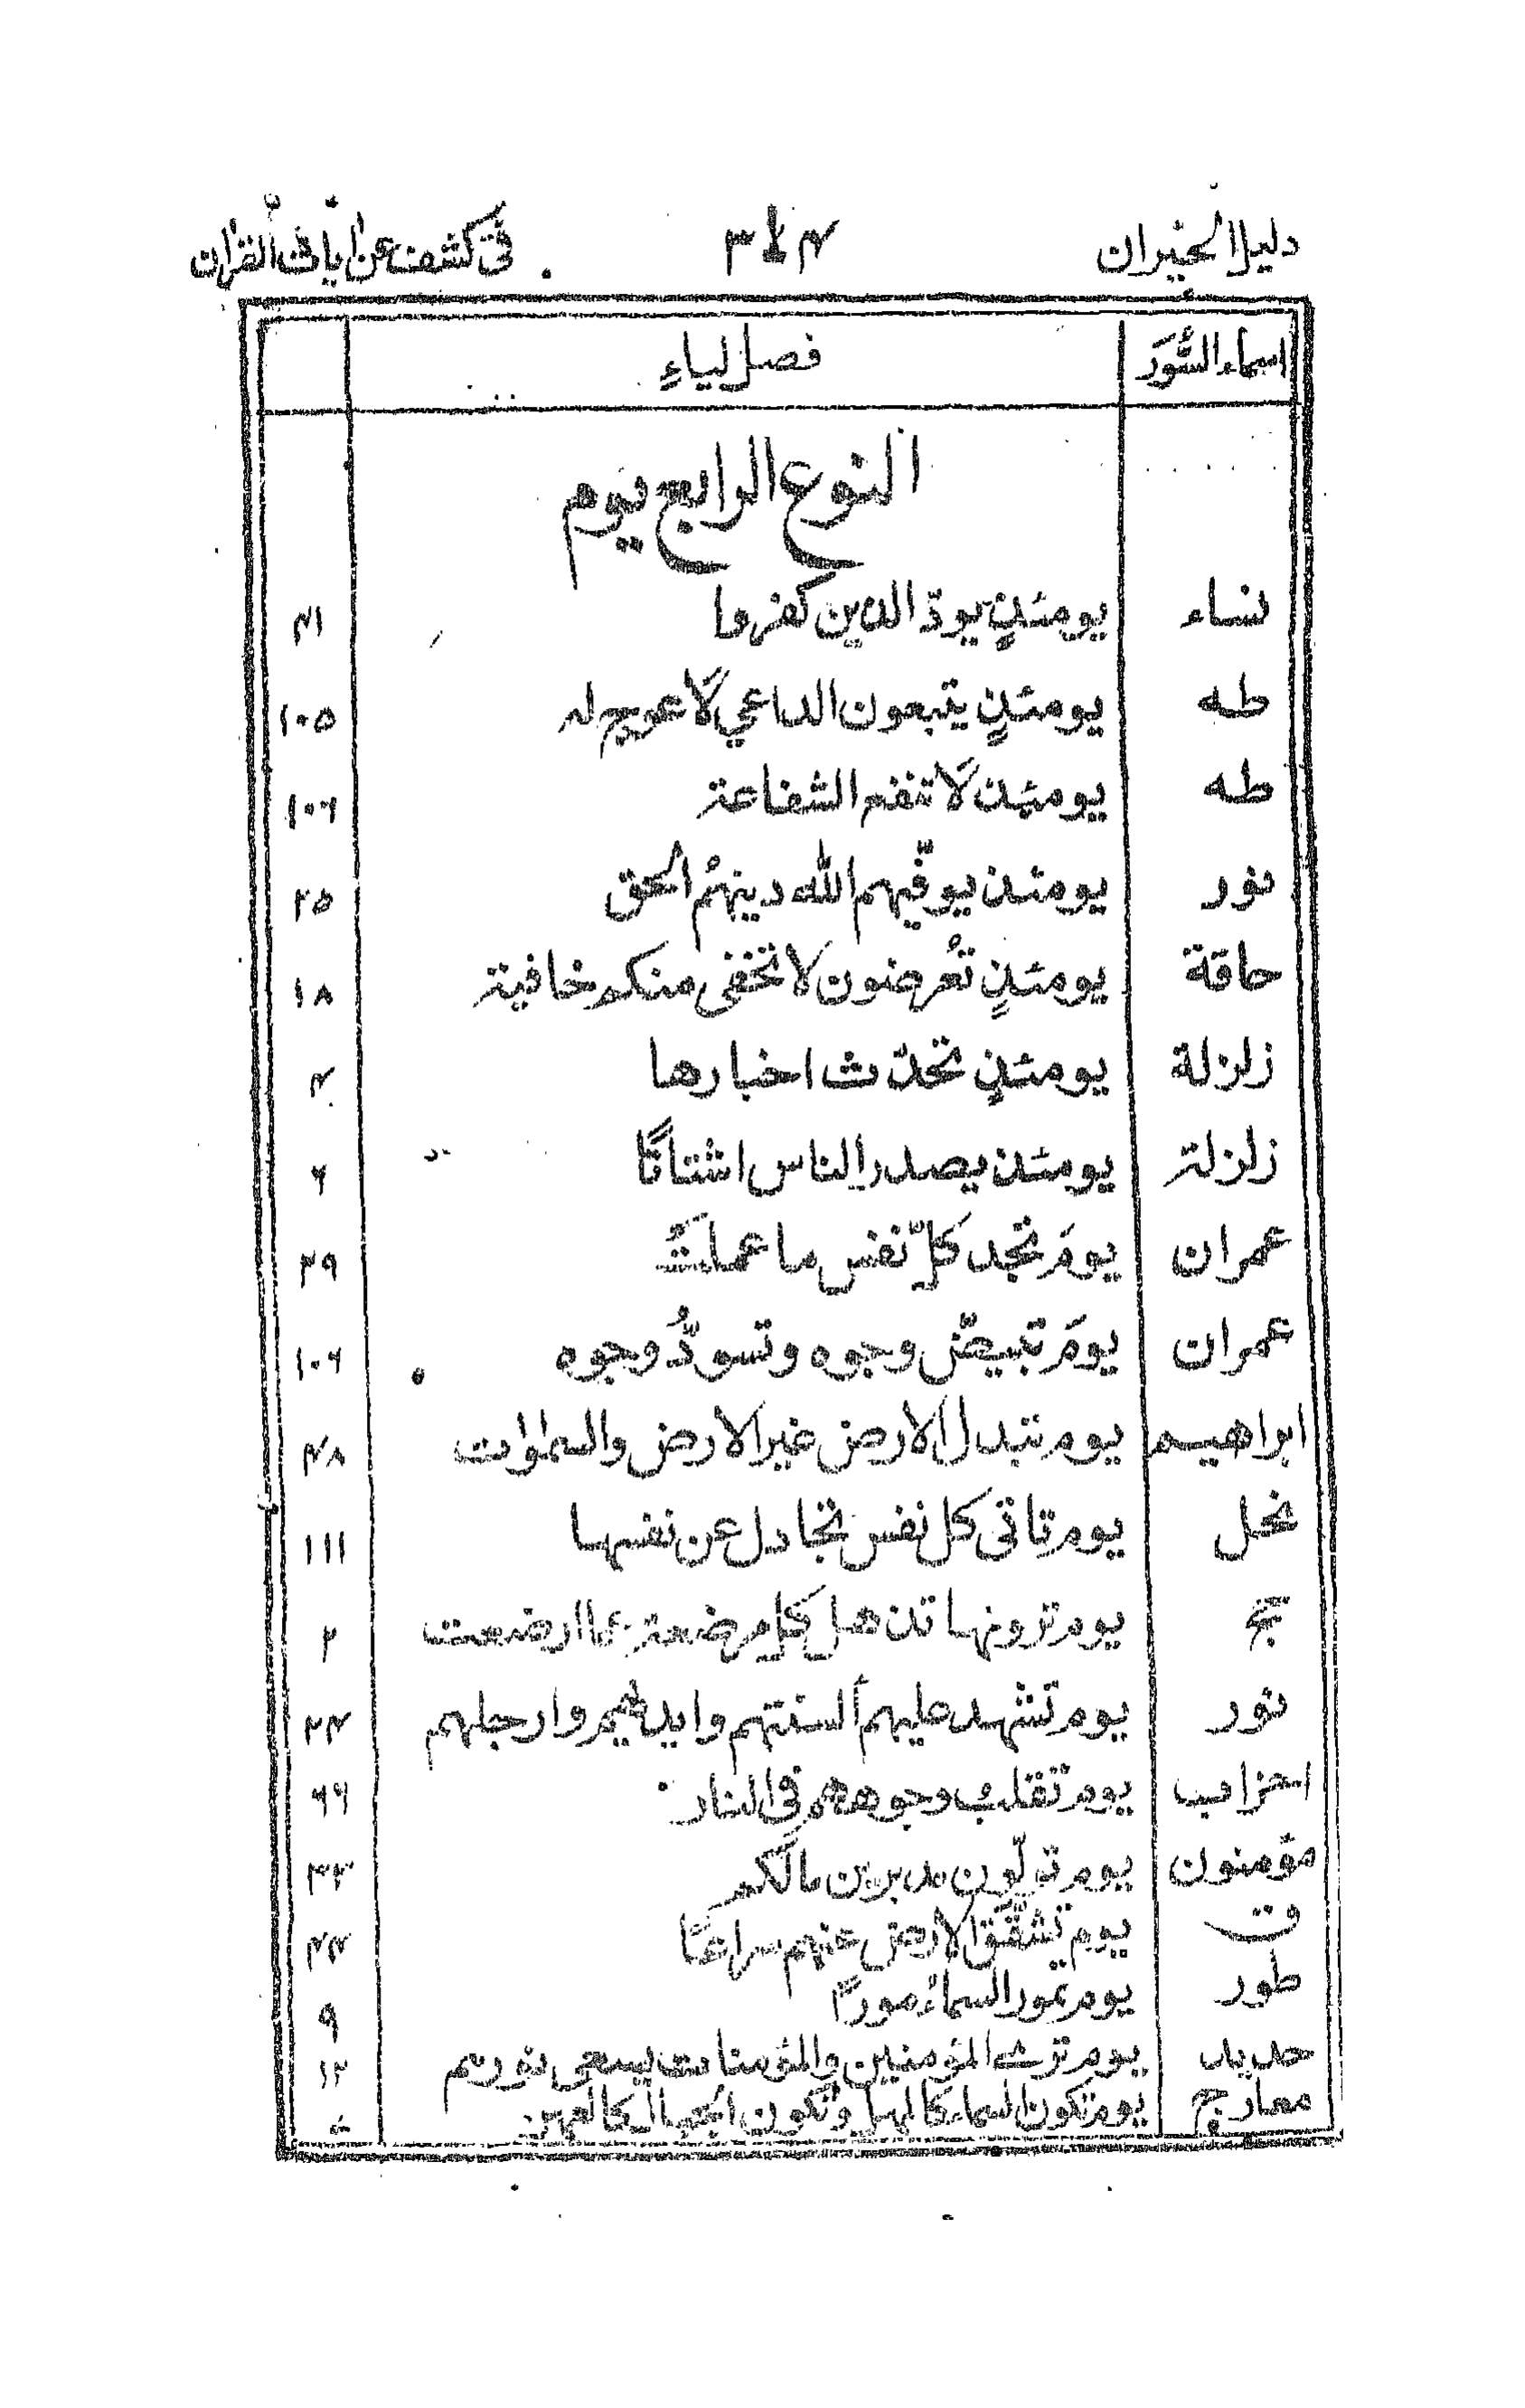 دليل الحيران ٣١٤ في كشف عن ايات القران
اسماء السُّوَر فصل لياءٍ
النوع الرابع يوم
نساء يومئذٍ يودّ الذين كفروا ٤١
طه يومئذٍ يتبعون الداعي لَا عوج له ١٠٥
طه يومئذ لَا تنفع الشفاعة ١٠٦
نور يومئذ يوفّيهم اللّٰه دينهمُ الحق ٢٥
حاقة يومئذٍ تُعرضون لا تخفى منكم خافية ١٨
زلزلة يومئذٍ تحدّث اخبارها ٤
زلزلة يومئذ يصدر الناس اشتاتًا ٦
عمران يومَ تجد كلّ نفس ما عملت ٢٩
عمران يومَ تبيضّ وجوه وتسودُّ وجوه ١٠٦
ابراهيم يوم تبدل الارض غير الارض والسمٰوات ٤٨
نحل يوم تاتي كل نفس تجادل عن نفسها ١١١
حج يوم ترونها تذهل كل مرضعة عما ارضعت ٢
نور يوم تشهد عليهم ألسنتهم وايديهم وارجلهم ٢٤
احزاب يوم تقلب وجوههم في النار ٦٦
مؤمنون يوم تولّون مدبرين مالكم ٣٣
ق يوم تشقّق الارض عنهم سراعًا ٤٤
طور يوم تمور السماءُ مورًا ٩
حديد يوم ترى المؤمنين والمؤمنات يسعى نورهم ١٢
معارج يوم تكون السماء كالمهل وتكون الجبال كالعهن